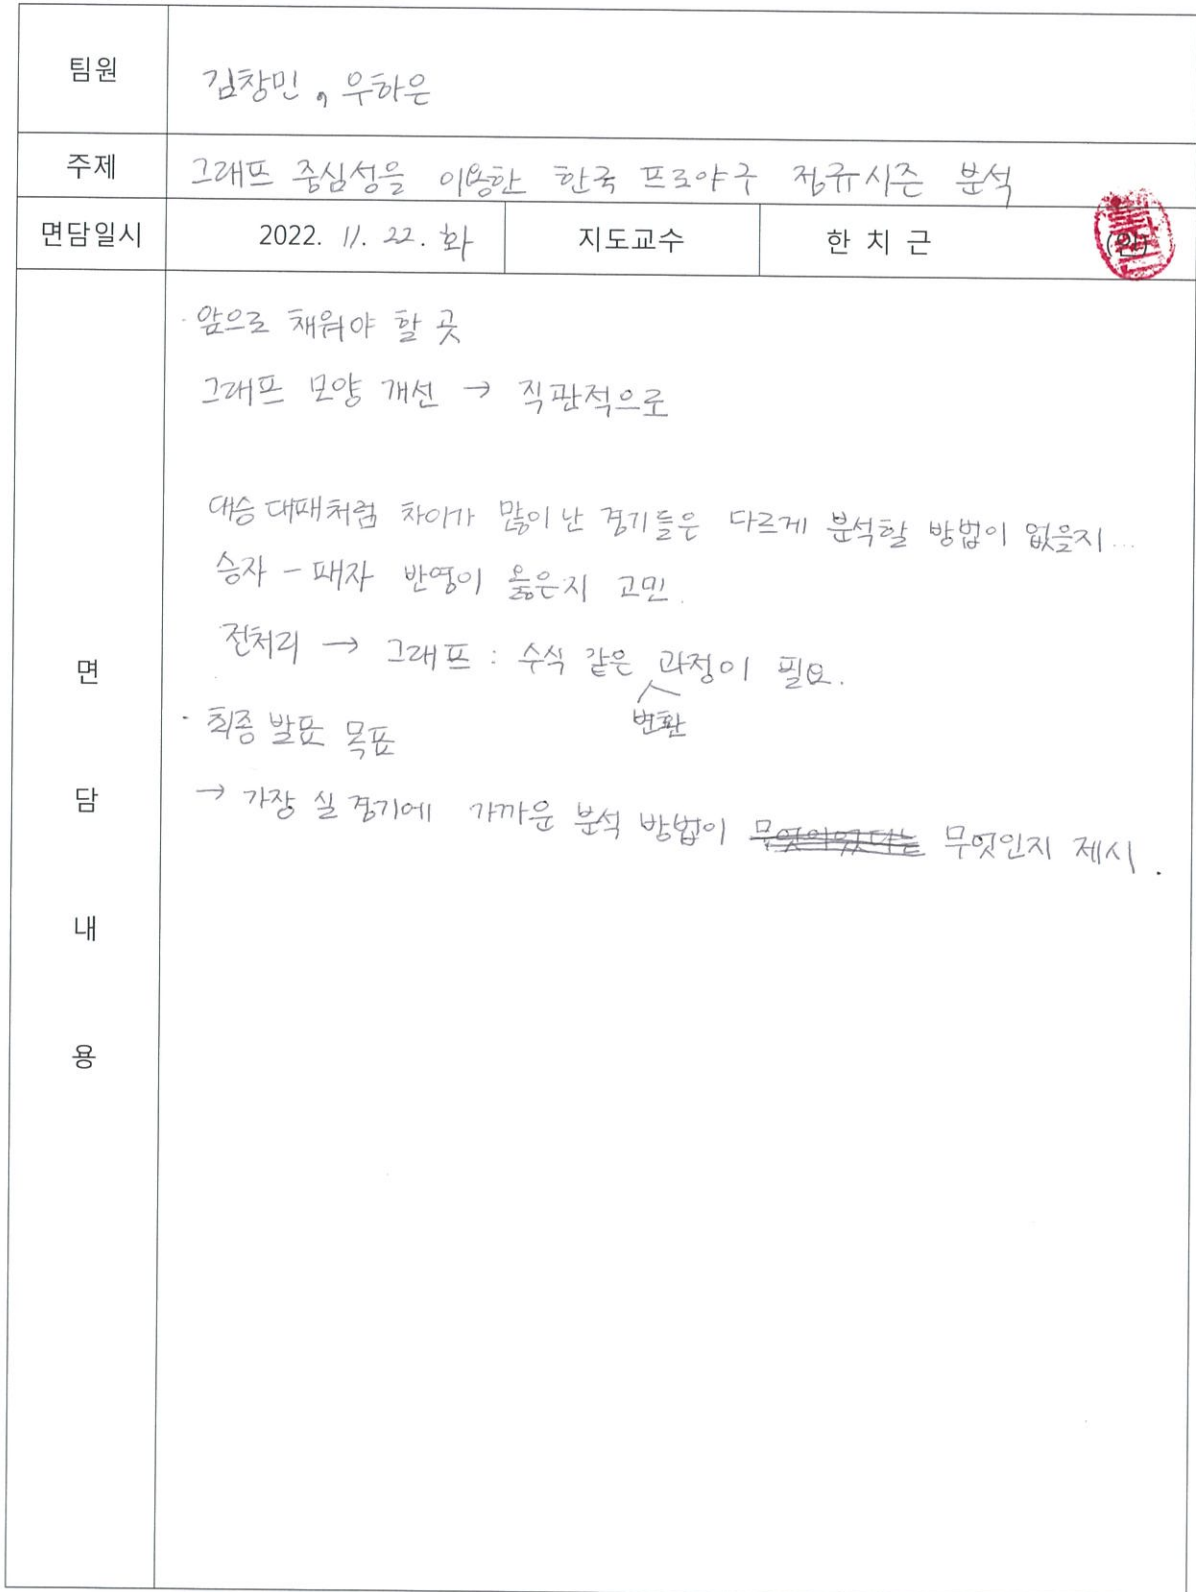 팀원 김창민, 우하은
주제 그래프 중심성을 이용한 한국 프로야구 정규시즌 분석
면담일시 2022. 11. 22. 화 지도교수 한 치 근 (인)
· 앞으로 채워야 할 곳
그래프 모양 개선 → 직관적으로
대승 대패처럼 차이가 많이 난 경기들은 다르게 분석할 방법이 없을지...
승자 - 패자 반영이 옳은지 고민.
전처리 → 그래프 : 수식 같은 과정이 필요.
변환
· 최종 발표 목표
→ 가장 실 경기에 가까운 분석 방법이 무엇인지 제시.
면
담
내
용